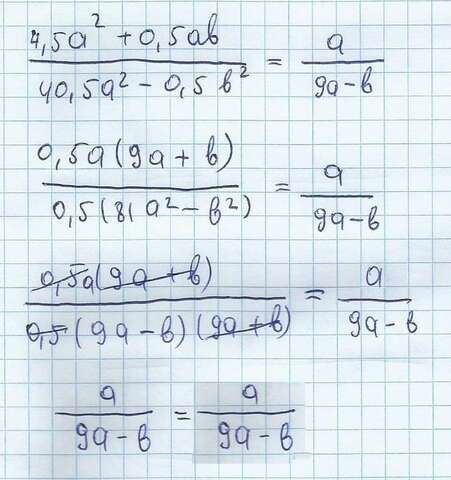 (4,5a² + 0,5ab) / (40,5a² - 0,5в²) = a / (9a-в)
0,5a(9a+в) / 0,5(81a²-в²) = a / (9a-в)
0,5a(9a+в) / 0,5(9a-в)(9a+в) = a / (9a-в)
a / (9a-в) = a / (9a-в)